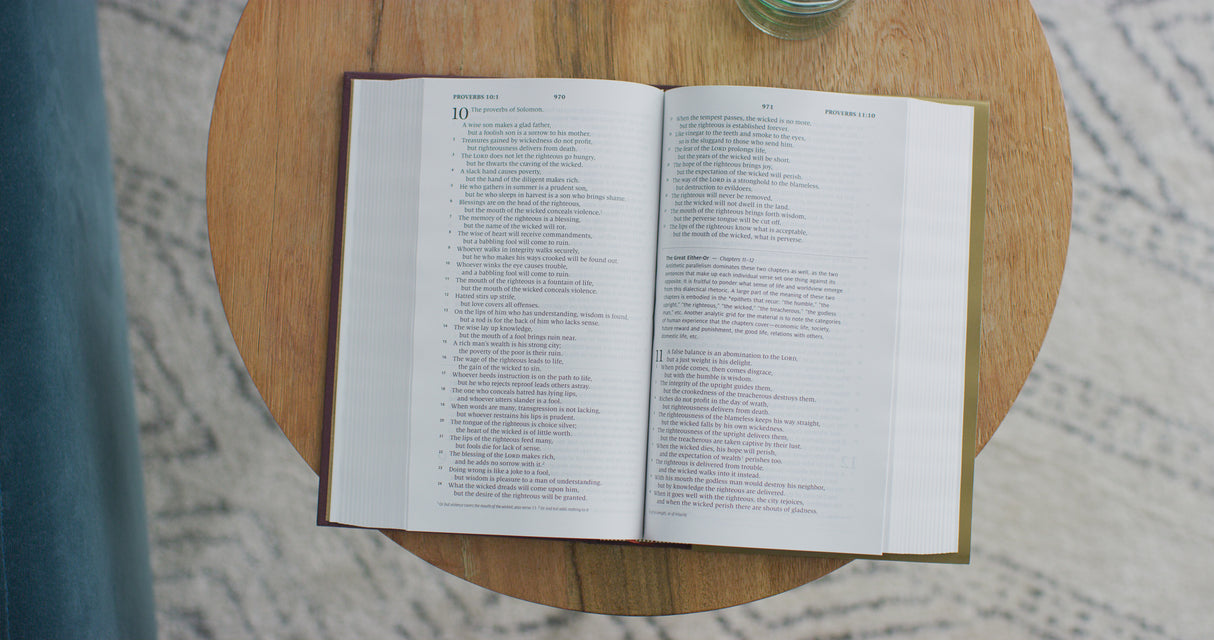 PROVERBS 10:1
970
10 The proverbs of Solomon.
A wise son makes a glad father,
but a foolish son is a sorrow to his mother.
2 Treasures gained by wickedness do not profit,
but righteousness delivers from death.
3 The LORD does not let the righteous go hungry,
but he thwarts the craving of the wicked.
4 A slack hand causes poverty,
but the hand of the diligent makes rich.
5 He who gathers in summer is a prudent son,
but he who sleeps in harvest is a son who brings shame.
6 Blessings are on the head of the righteous,
but the mouth of the wicked conceals violence.1
7 The memory of the righteous is a blessing,
but the name of the wicked will rot.
8 The wise of heart will receive commandments,
but a babbling fool will come to ruin.
9 Whoever walks in integrity walks securely,
but he who makes his ways crooked will be found out.
10 Whoever winks the eye causes trouble,
and a babbling fool will come to ruin.
11 The mouth of the righteous is a fountain of life,
but the mouth of the wicked conceals violence.
12 Hatred stirs up strife,
but love covers all offenses.
13 On the lips of him who has understanding, wisdom is found,
but a rod is for the back of him who lacks sense.
14 The wise lay up knowledge,
but the mouth of a fool brings ruin near.
15 A rich man's wealth is his strong city;
the poverty of the poor is their ruin.
16 The wage of the righteous leads to life,
the gain of the wicked to sin.
17 Whoever heeds instruction is on the path to life,
but he who rejects reproof leads others astray.
18 The one who conceals hatred has lying lips,
and whoever utters slander is a fool.
19 When words are many, transgression is not lacking,
but whoever restrains his lips is prudent.
20 The tongue of the righteous is choice silver;
the heart of the wicked is of little worth.
21 The lips of the righteous feed many,
but fools die for lack of sense.
22 The blessing of the LORD makes rich,
and he adds no sorrow with it.2
23 Doing wrong is like a joke to a fool,
but wisdom is pleasure to a man of understanding.
24 What the wicked dreads will come upon him,
but the desire of the righteous will be granted.
971
PROVERBS 11:10
When the tempest passes, the wicked is no more,
but the righteous is established forever.
Like vinegar to the teeth and smoke to the eyes,
so is the sluggard to those who send him.
The fear of the LORD prolongs life,
but the years of the wicked will be short.
The hope of the righteous brings joy,
but the expectation of the wicked will perish.
The way of the LORD is a stronghold to the blameless,
but destruction to evildoers.
The righteous will never be removed,
but the wicked will not dwell in the land.
The mouth of the righteous brings forth wisdom,
but the perverse tongue will be cut off.
The lips of the righteous know what is acceptable,
but the mouth of the wicked, what is perverse.
The Great Either-Or — Chapters 11–12
Antithetic parallelism dominates these two chapters as well, as the two
sentences that make up each individual verse set one thing against its
opposite. It is fruitful to ponder what sense of life and worldview emerge
from this dialectical rhetoric. A large part of the meaning of these two
chapters is embodied in the *epithets that recur: "the humble," "the
upright," "the righteous," "the wicked," "the treacherous," "the godless
man," etc. Another analytic grid for the material is to note the categories
of human experience that the chapters cover—economic life, society,
future reward and punishment, the good life, relations with others,
domestic life, etc.
11 A false balance is an abomination to the LORD,
but a just weight is his delight.
When pride comes, then comes disgrace,
but with the humble is wisdom.
The integrity of the upright guides them,
but the crookedness of the treacherous destroys them.
Riches do not profit in the day of wrath,
but righteousness delivers from death.
The righteousness of the blameless keeps his way straight,
but the wicked falls by his own wickedness.
The righteousness of the upright delivers them,
but the treacherous are taken captive by their lust.
When the wicked dies, his hope will perish,
and the expectation of wealth1 perishes too.
The righteous is delivered from trouble,
and the wicked walks into it instead.
With his mouth the godless man would destroy his neighbor,
but by knowledge the righteous are delivered.
When it goes well with the righteous, the city rejoices,
and when the wicked perish there are shouts of gladness.